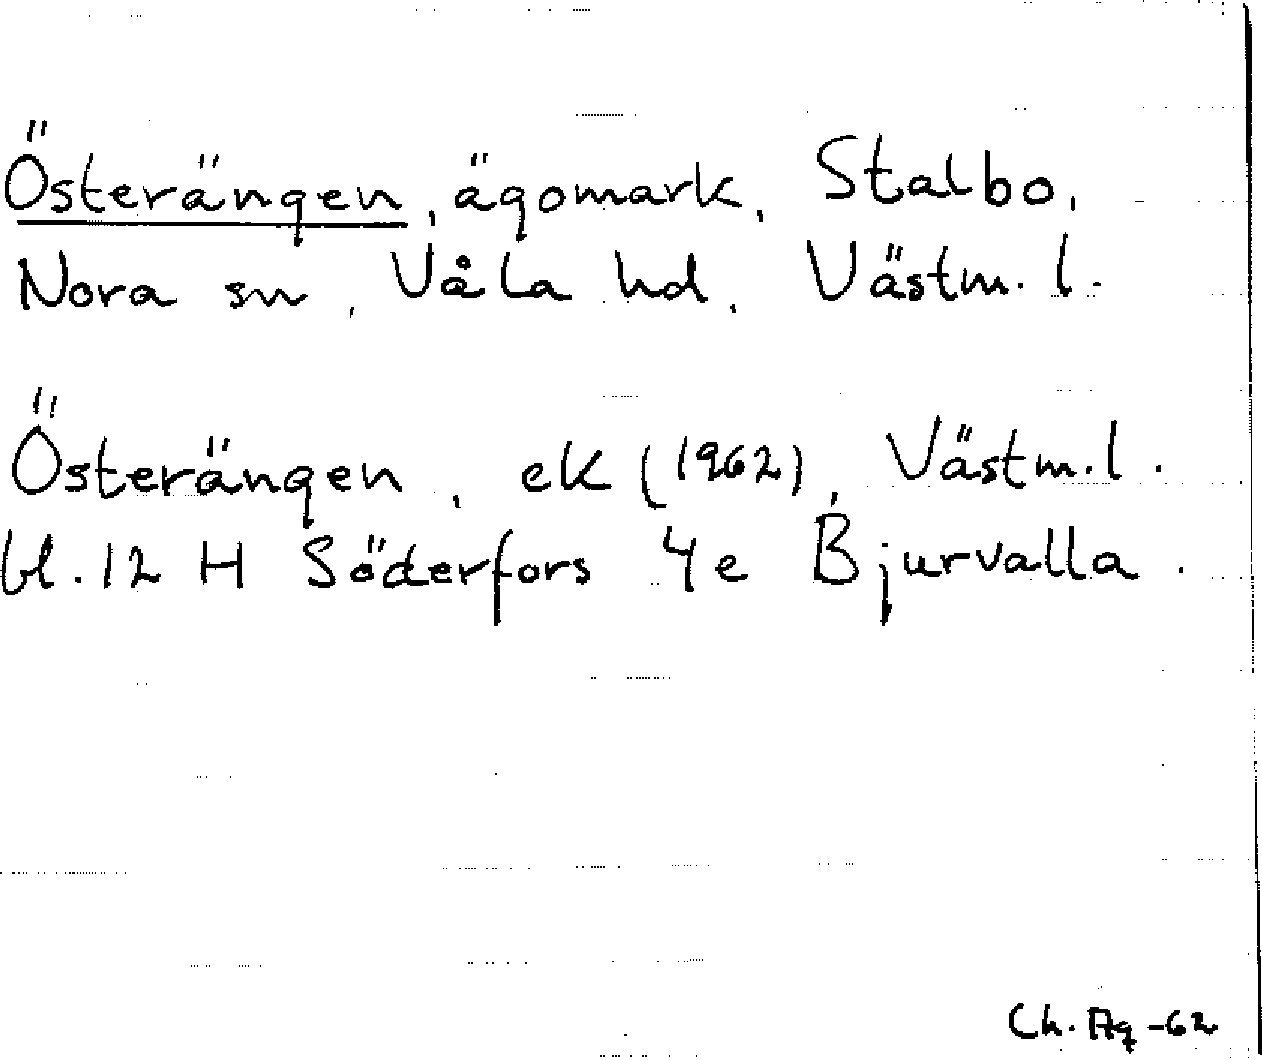 Österängen, ägomark, Stalbo,
Nora sn, Våla hd, Västm. l.
Österängen, ek (1962), Västm. l.
bl. 12 H Söderfors 4e Bjurvalla.
Ch. Ag -62